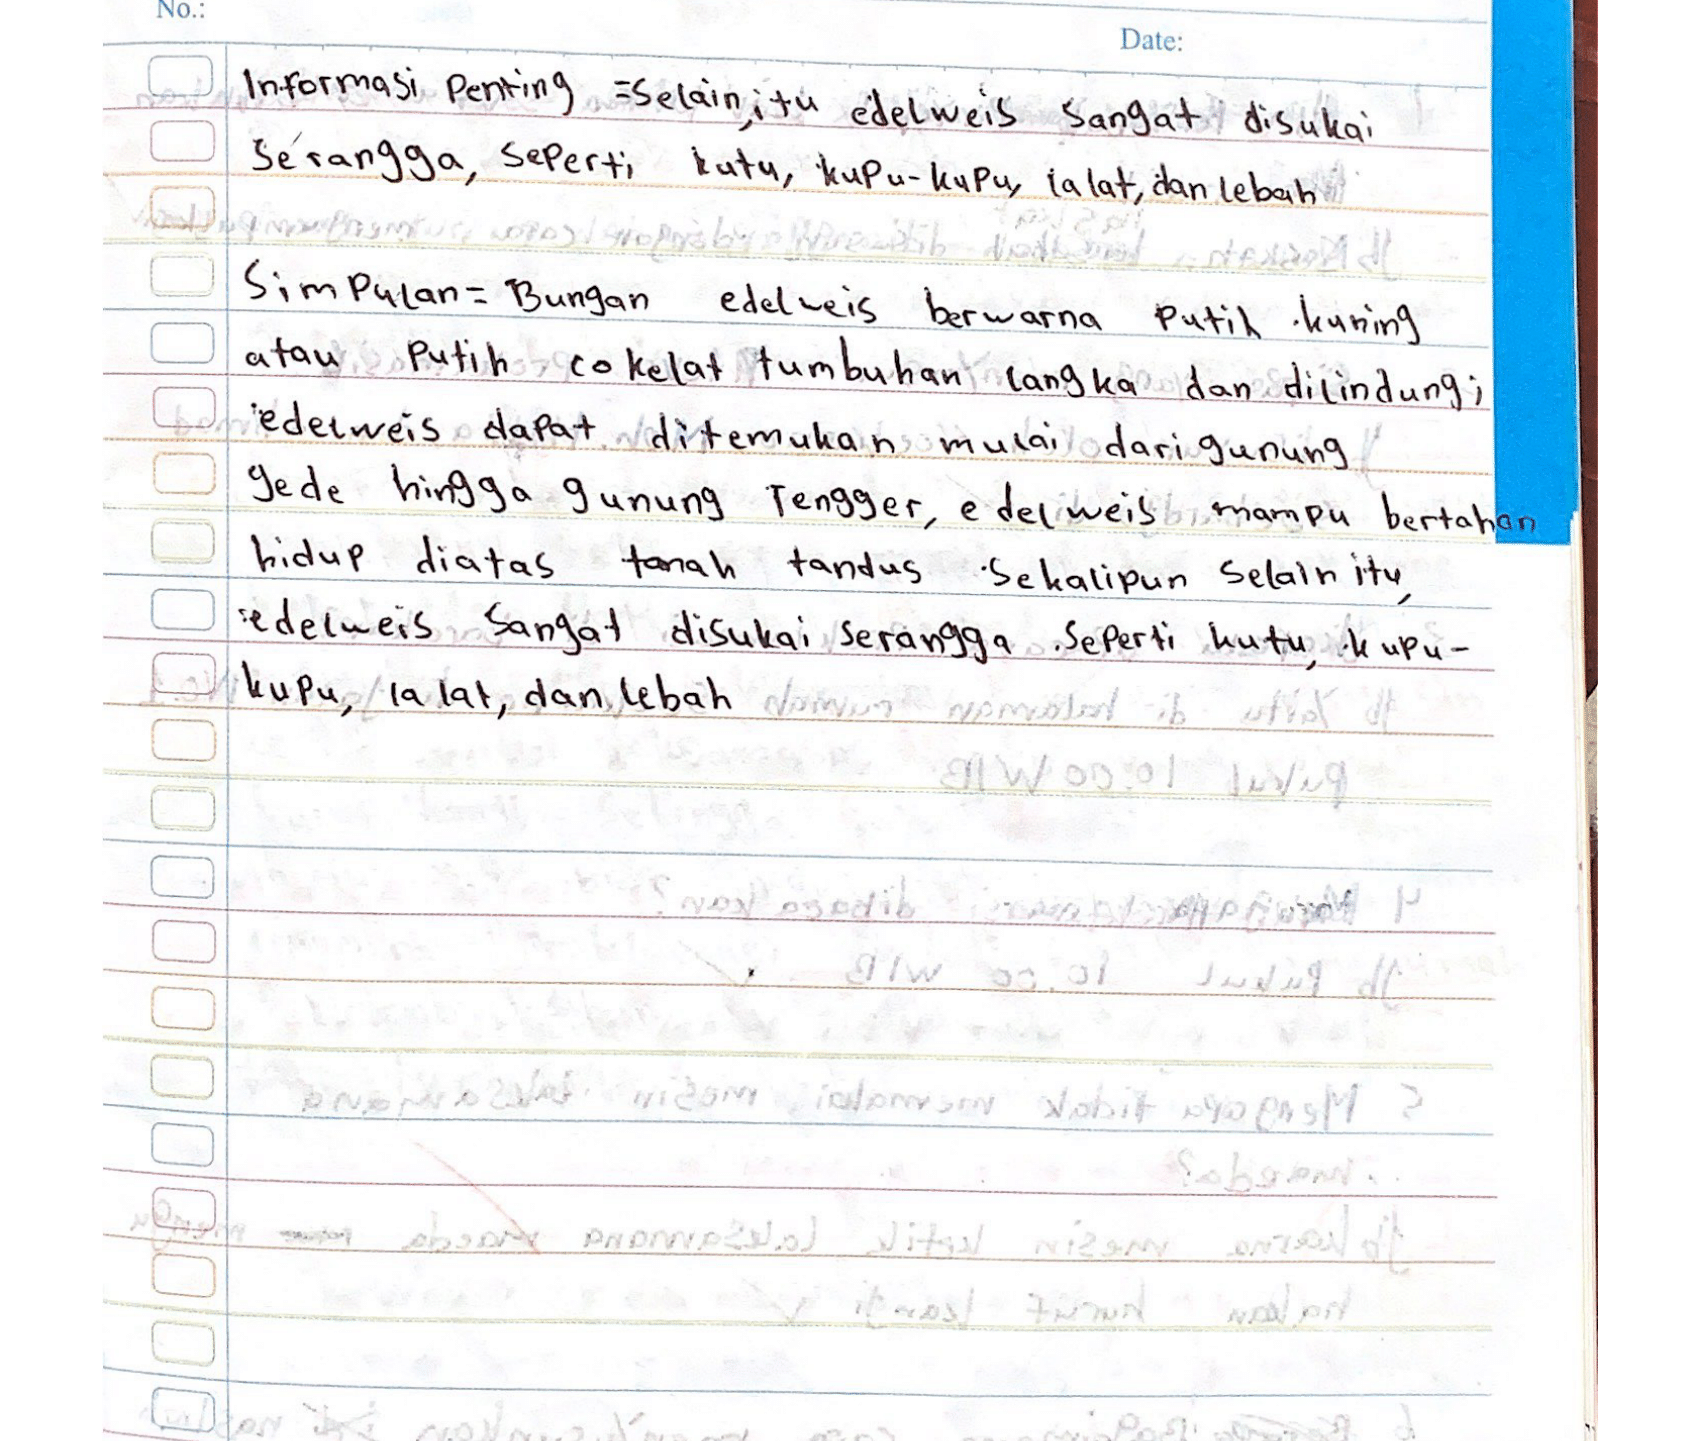 No.:
Date:
Informasi Penting =Selain,itu edelweis Sangat disukai
Serangga, Seperti kutu, kupu-kupu, lalat, dan lebah
Simpulan= Bungan edelweis berwarna Putih kuning
atau Putih cokelat tumbuhan langka dan dilindungi
edelweis dapat ditemukan mulai dari gunung
gede hingga gunung Tengger, edelweis mampu bertahan
hidup diatas tanah tandus Sekalipun Selain itu,
edelweis Sangat disukai Serangga Seperti kutu, kupu-
kupu, lalat, dan lebah